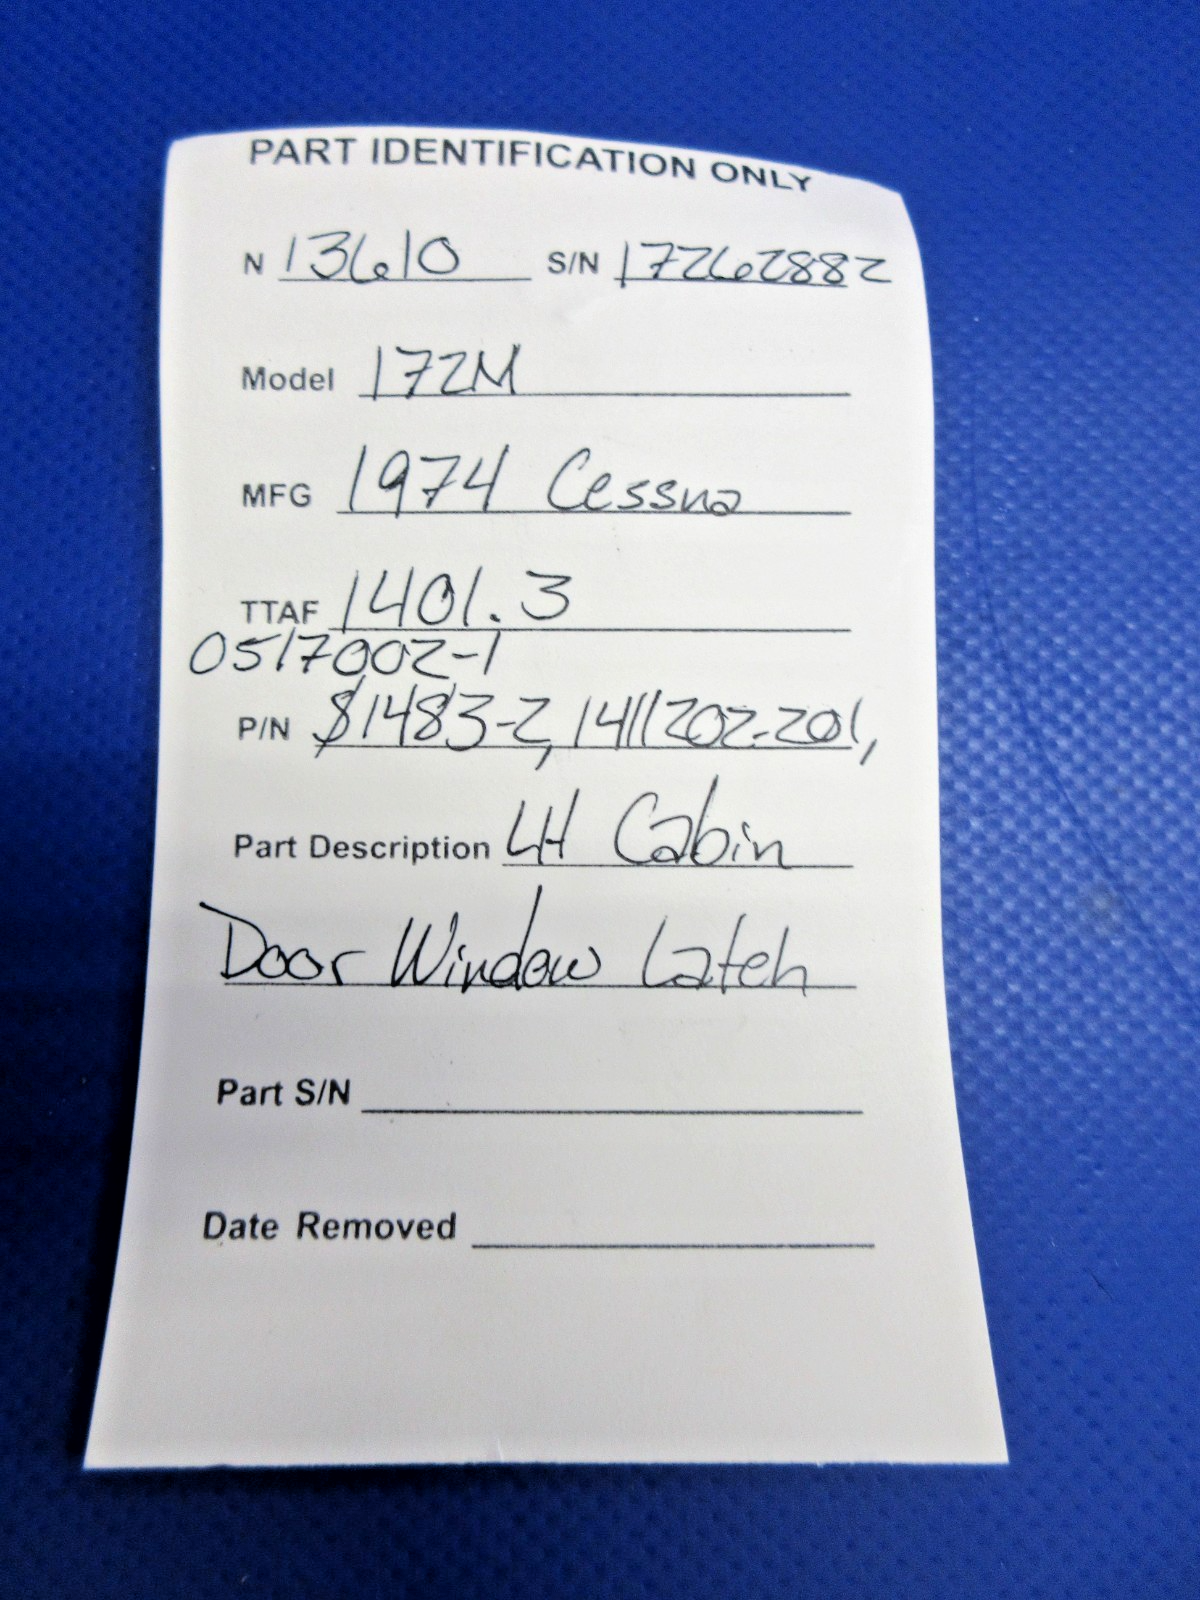 PART IDENTIFICATION ONLY
N 13610 S/N 17262882
Model 172M
MFG 1974 Cessna
TTAF 1401.3
0517002-1
P/N S1483-2, 1411202-201,
Part Description LH Cabin
Door Window Latch
Part S/N
Date Removed